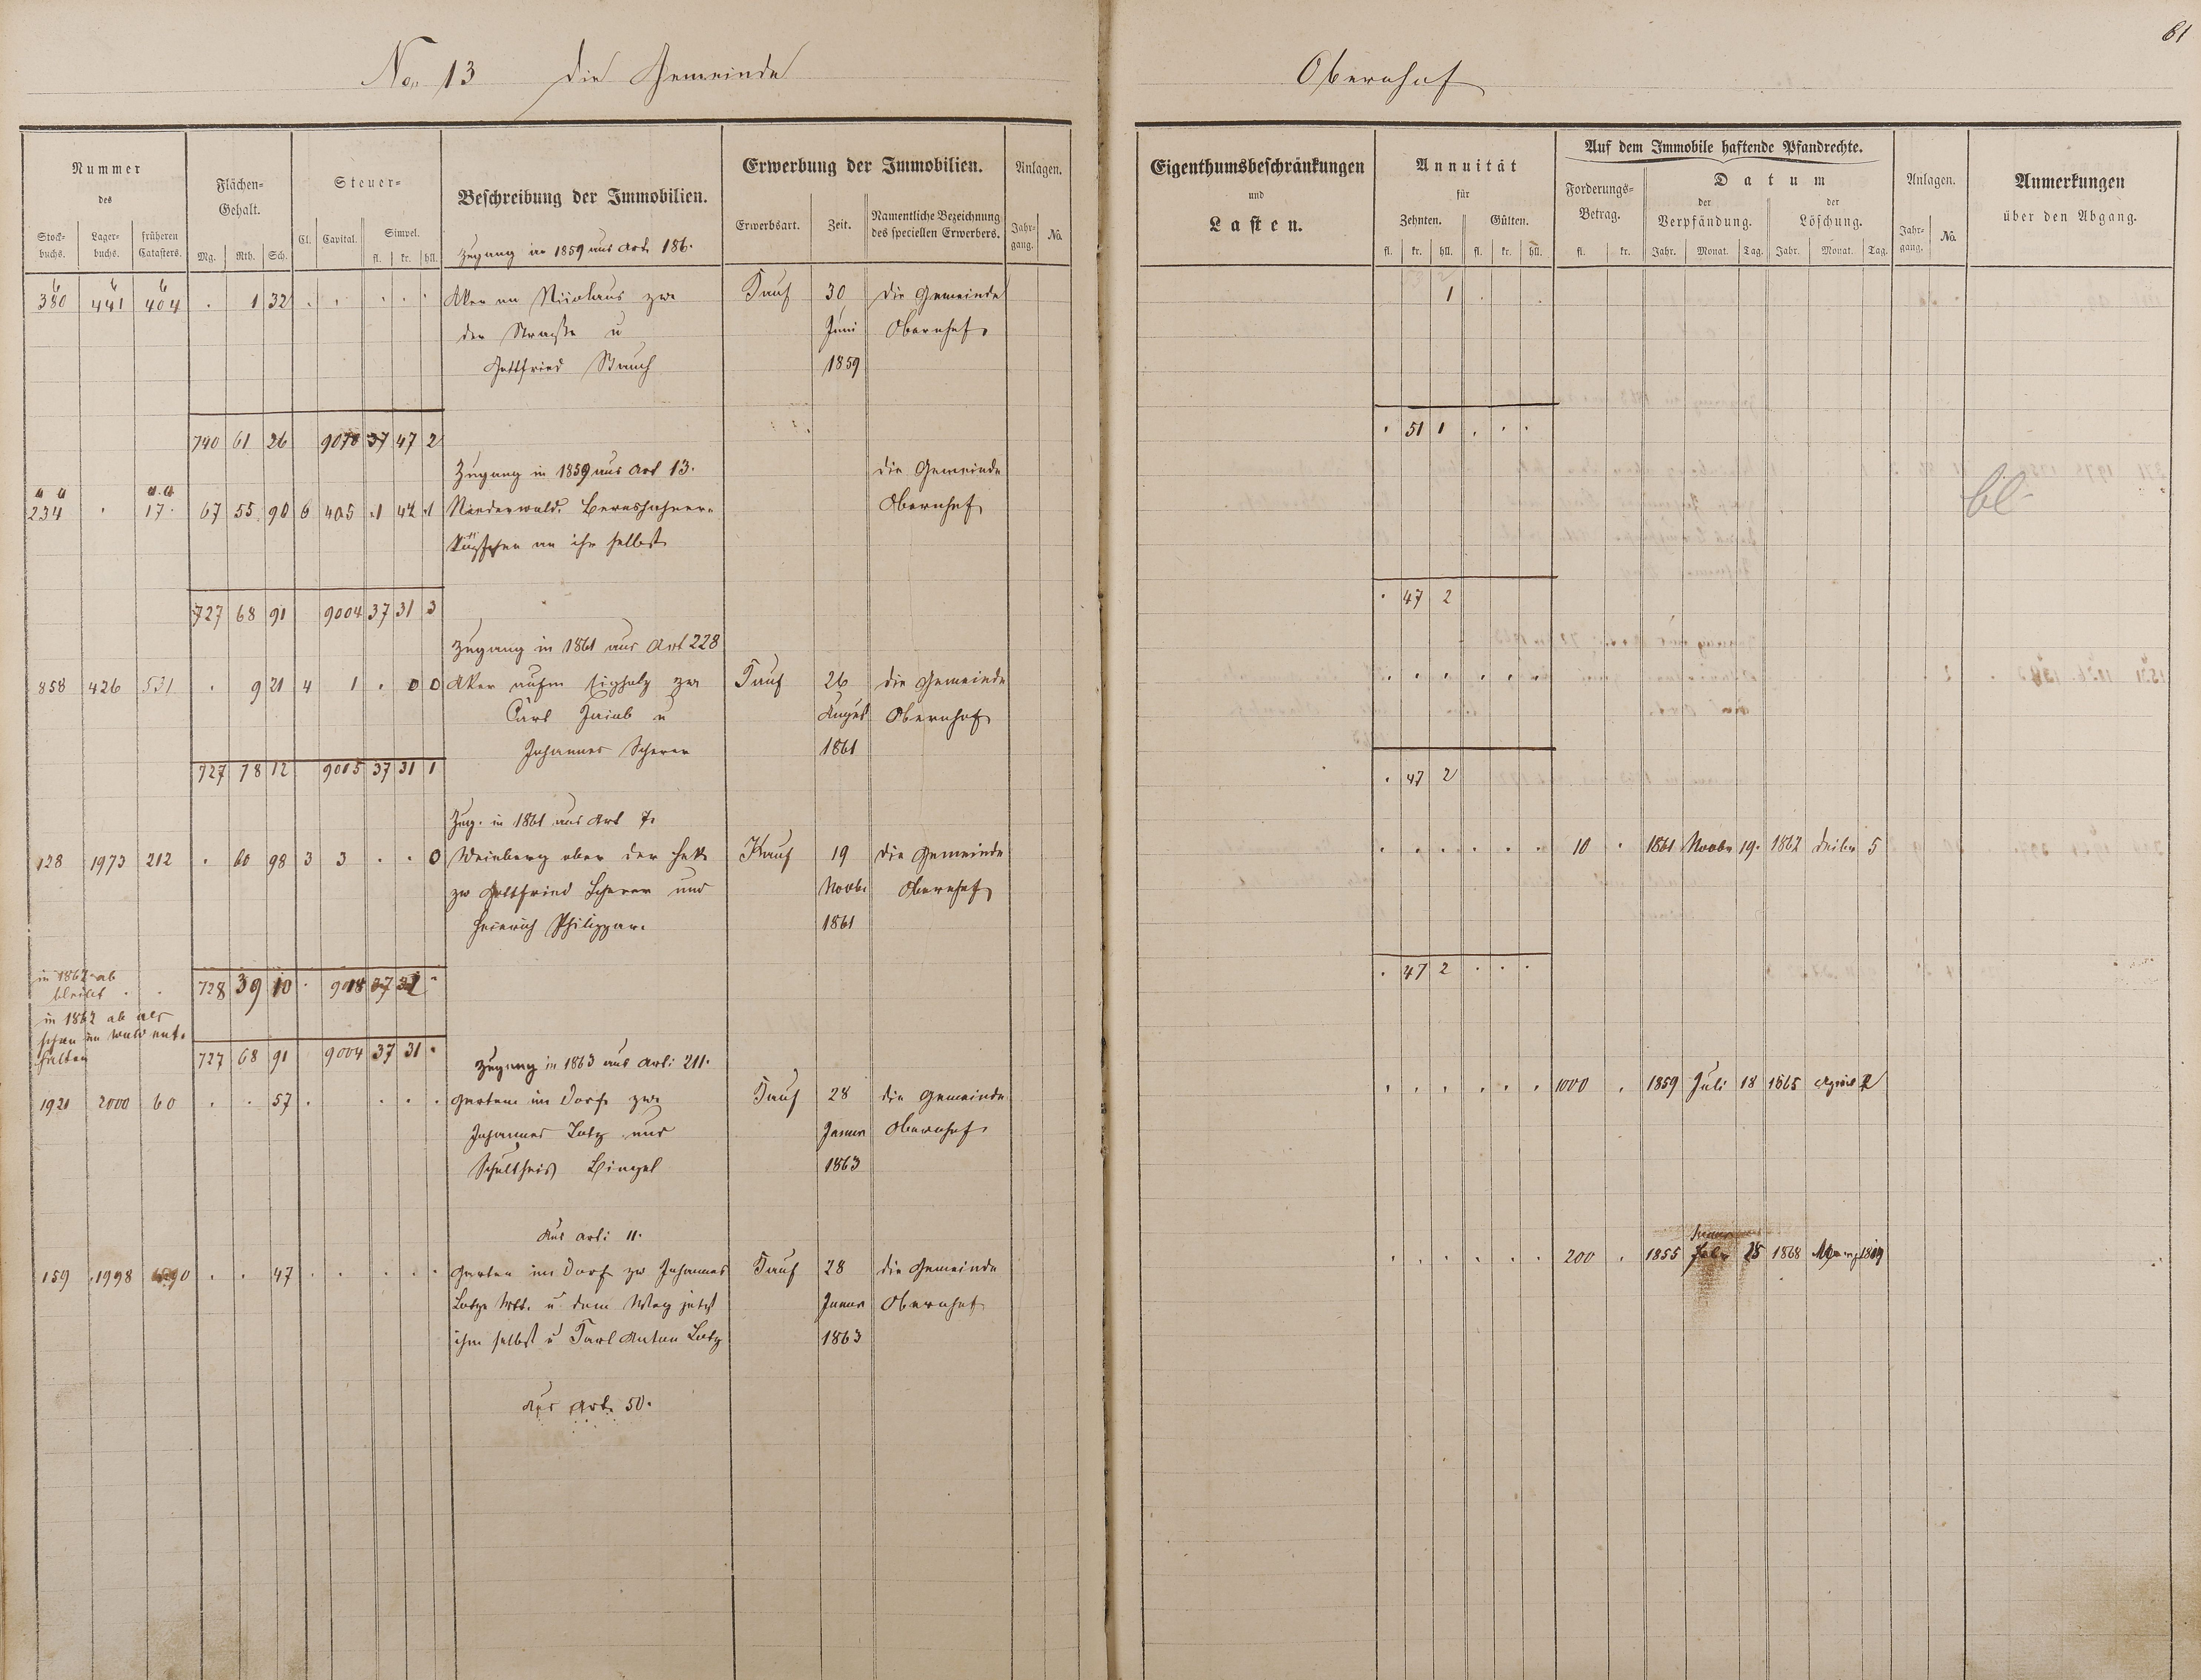 61
No. 13 die Gemeinde Obernhof
Nummer des
Stock-buchs. Lager-buchs. früheren Catasters.
Flächen-Gehalt.
Mg. Rth. Sch.
Steuer-
Cl. Capital. Simpel.
fl. kr. hll.
Beschreibung der Immobilien.
Erwerbung der Immobilien.
Erwerbsart. Zeit. Namentliche Bezeichnung des speciellen Erwerbers.
Anlagen.
Jahr-gang. No.
Eigenthumsbeschränkungen
und
Lasten.
Annuität
für
Zehnten. Gülten.
fl. kr. hll. fl. kr. hll.
Auf dem Immobile haftende Pfandrechte.
Forderungs-Betrag.
fl. kr.
Datum
der Verpfändung. der Löschung.
Jahr. Monat. Tag. Jahr. Monat. Tag.
Anlagen.
Jahr-gang. No.
Anmerkungen
über den Abgang.
Zugang in 1859 aus Art. 186.
b b b
380 441 404 . 1 32 . . . . . Aker am zw. Kauf 30 die Gemeinde 1
der Straße u Juni Obernhof
Gottfried Stauch 1859
740 61 26 9078 37 47 2 . 51 1 . . .
Zugang in 1859 aus Art 13. die Gemeinde
a a a. a
234 . 17. 67 55 90 6 405 1 42 1 Niederwald. Obernhof
an ihr selbst
bl-
727 68 91 9004 37 31 3 . 47 2
Zugang in 1861 aus Art 228
858 426 531 . 9 21 4 1 . 0 0 Aker aufm zw Kauf 26 die Gemeinde
Carl Jacob u August Obernhof
Johannes Scherer 1861
727 78 12 9005 37 31 1 . 47 2
Zug. in 1861 aus Art 7.
128 1973 212 . 60 98 3 3 . . 0 Weinberg ober der Kauf 19 die Gemeinde 10 . 1861 Novbr 19. 1862 5
zw Gottfried Scherer und Novbr. Obernhof
Heinrich Philippar. 1861
in 1862 ab
bleibt . . 728 39 10 . 9018 37 . 47 2 . . .
in 1862 ab als
schon im Wald ent-
halten 727 68 91 9004 37 31 .
Zugang in 1863 aus Art: 211.
1921 2000 60 . . 57 . . . . Garten im Dorf zw. Kauf 28 die Gemeinde 1000 . 1859 Juli 18 1865
Johannes Lotz und Januar Obernhof
Schultheis Bingel 1863
Aus Art: 11.
159 1998 . . 47 . . . . . Garten im Dorf zw Johannes Kauf 28 die Gemeinde 200 . 1855 1868
Lotze Wtb. u dem Weg jetzt Januar Obernhof
ihm selbst u Carl Anton Lotz 1863
Aus Art. 50.